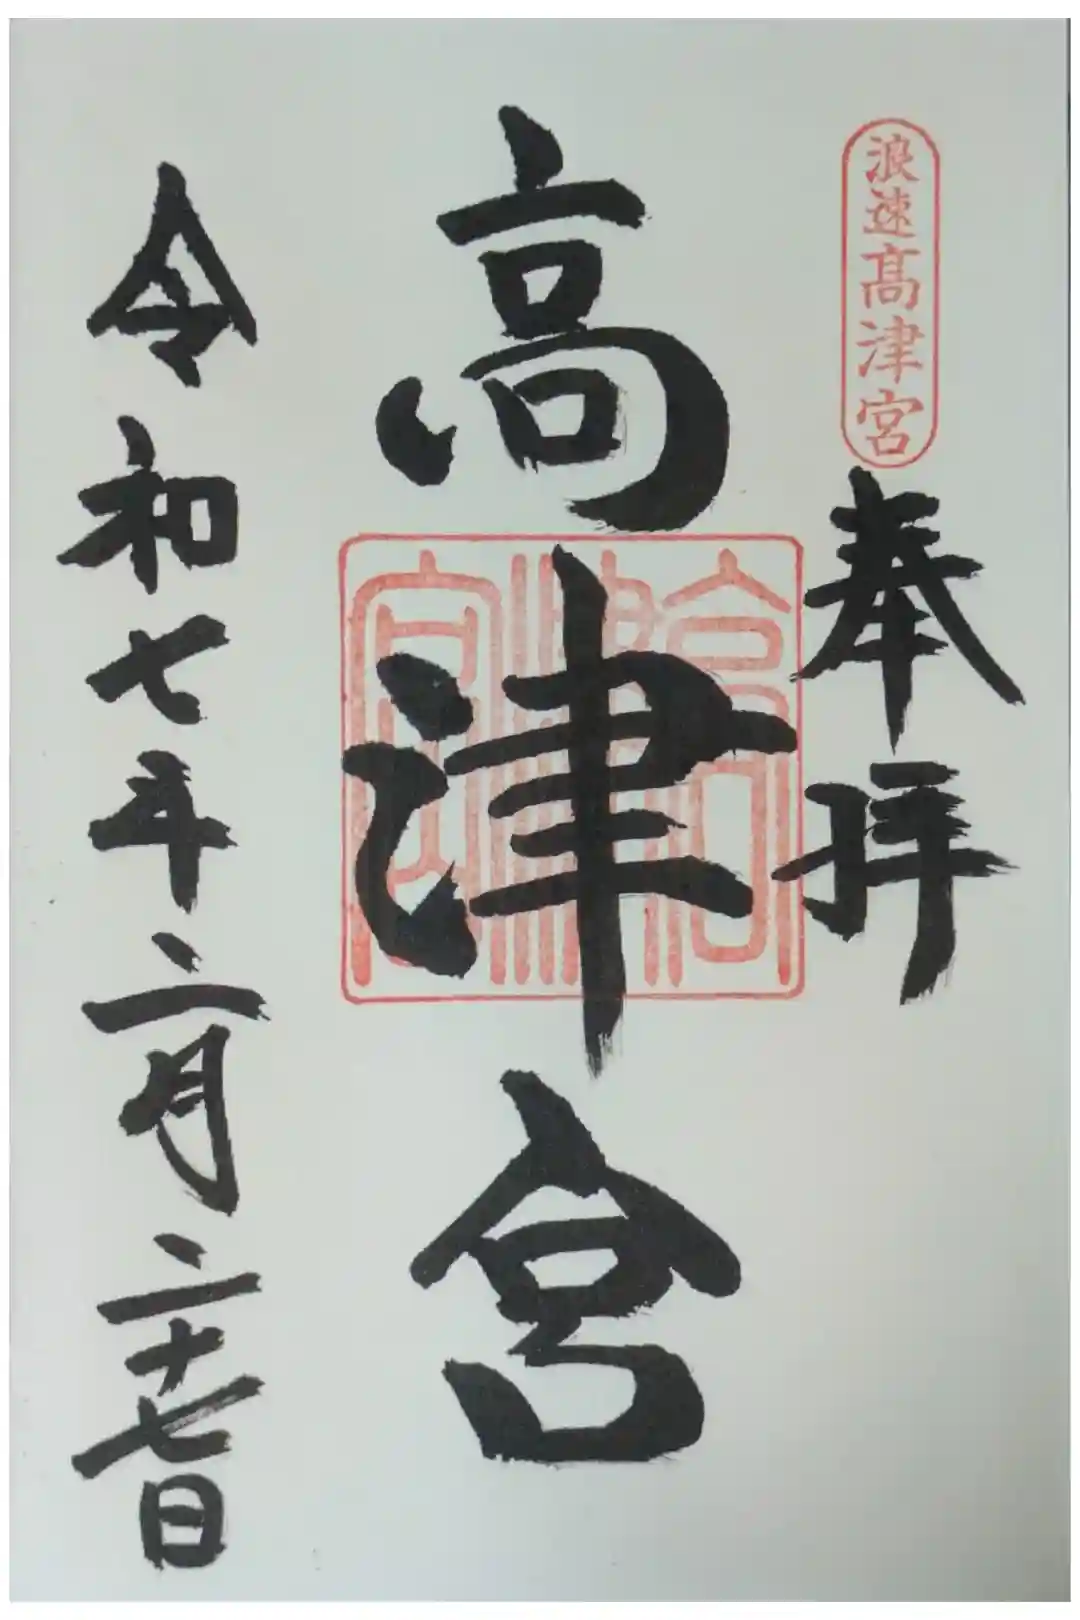 浪速高津宮
奉拝
高津宮
高津宮印
令和七年二月二十七日